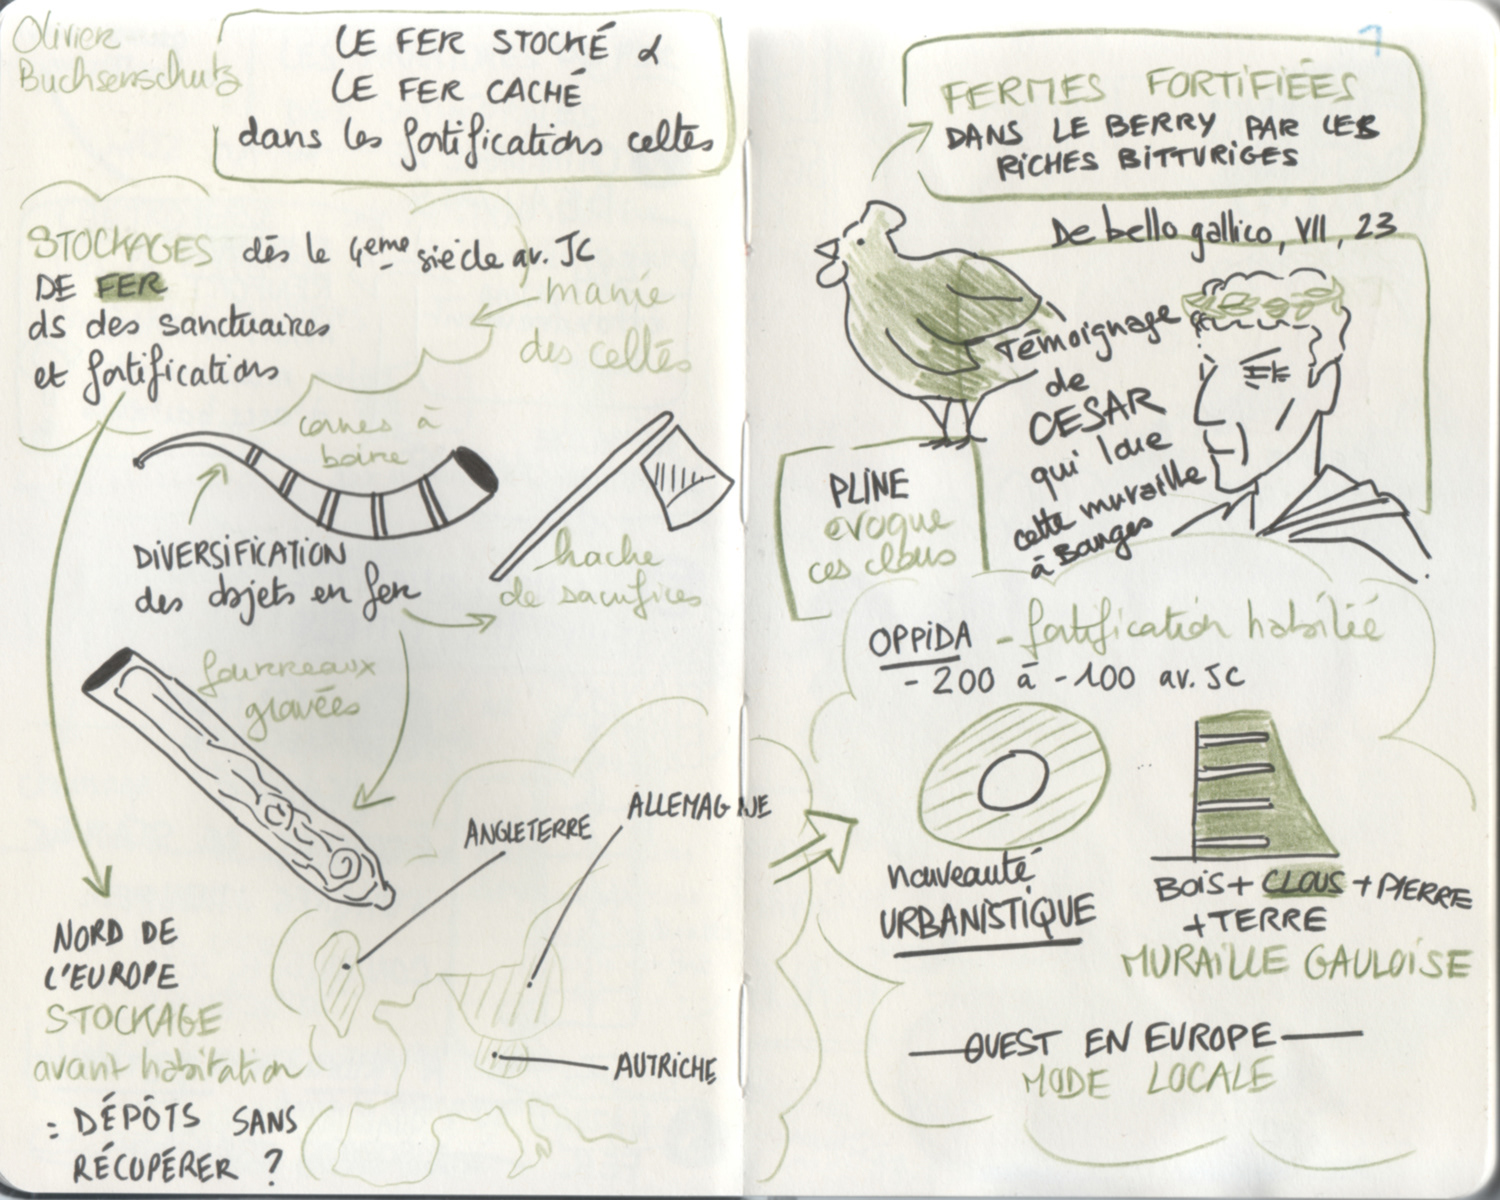 Olivier
Buchsenschutz
LE FER STOCKÉ &
LE FER CACHÉ
dans les fortifications celtes
STOCKAGES dès le 4eme siècle av. JC
DE FER
ds des sanctuaires
et fortifications
manie
des celtes
cornes à
boire
DIVERSIFICATION
des objets en fer
hache
de sacrifices
fourreaux
gravées
ANGLETERRE
ALLEMAGNE
AUTRICHE
NORD DE
L'EUROPE
STOCKAGE
avant habitation
= DÉPÔTS SANS
RÉCUPÉRER ?
1
FERMES FORTIFIÉES
DANS LE BERRY PAR LES
RICHES BITTURIGES
De bello gallico, VII, 23
Témoignage
de
CESAR
qui loue
cette muraille
à Bourges
PLINE
evoque
ces clous
OPPIDA - fortification habitée
- 200 à - 100 av. JC
nouveauté
URBANISTIQUE
BOIS + CLOUS + PIERRE
+ TERRE
MURAILLE GAULOISE
OUEST EN EUROPE
MODE LOCALE